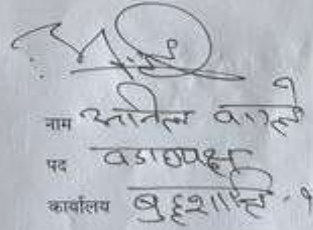 नाम अनिल वाग्ले
पद वडाध्यक्ष
कार्यालय बुद्धशान्ति - १